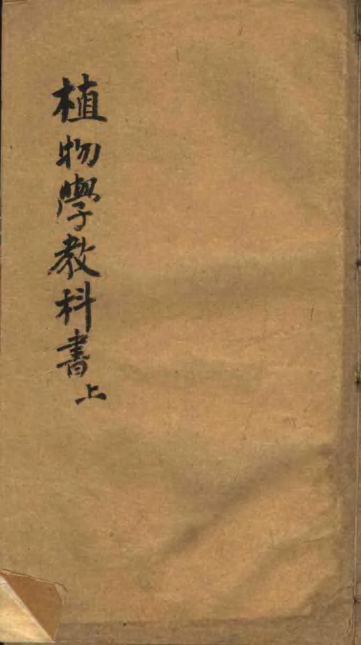 植物學教科書上